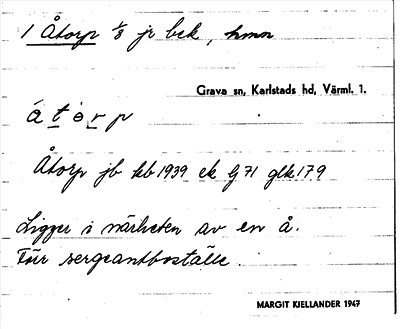 1 Åtorp 1/8 jr bek, hmn
Grava sn, Karlstads hd, Värml. l.
á t ò r p
Åtorp jb kb 1939 ek G 71 glk 179
Ligger i närheten av en å.
Förr sergeantboställe.
MARGIT KJELLANDER 1947